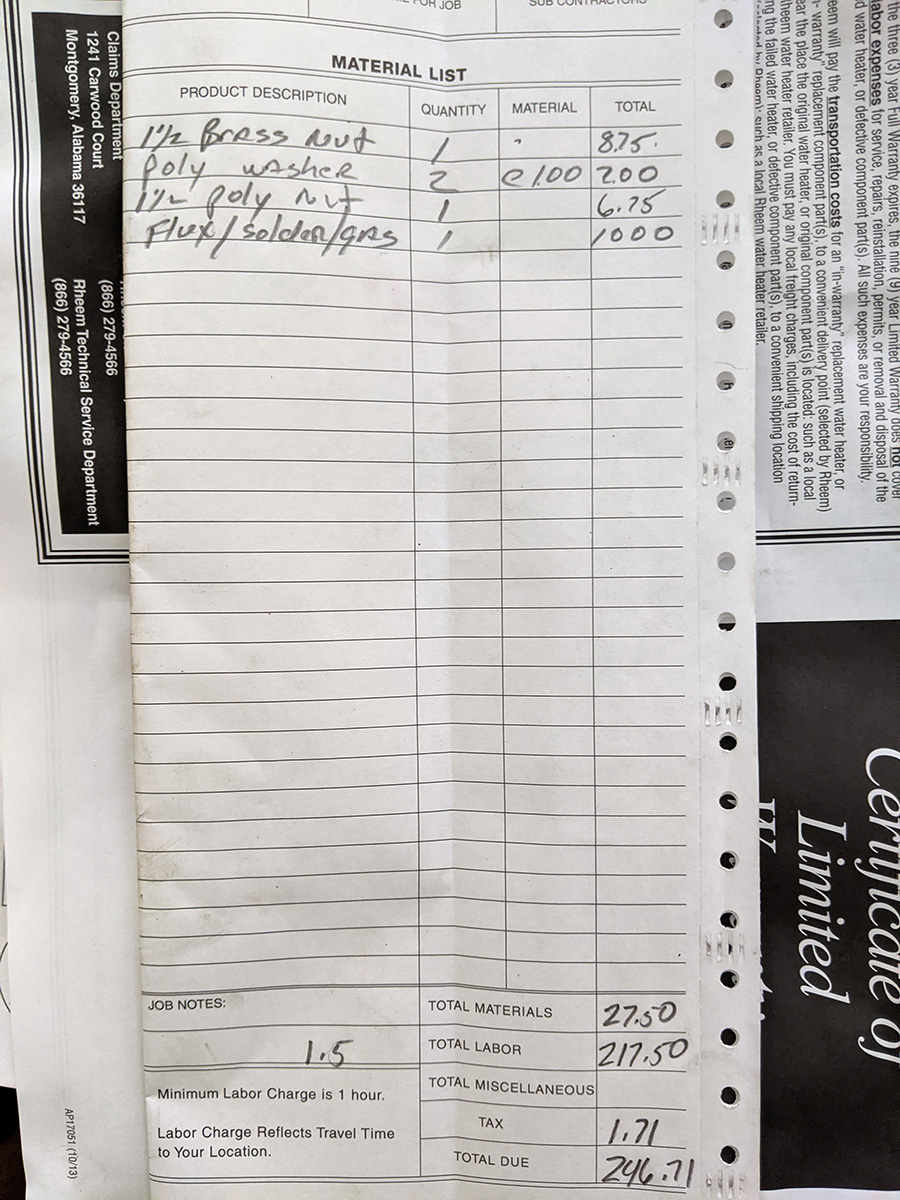 FOR JOB
SUB CONTRACTORS
MATERIAL LIST
PRODUCT DESCRIPTION QUANTITY MATERIAL TOTAL
1½ Brass Nut 1 8.75
Poly washer 2 @1.00 2.00
1½ Poly Nut 1 6.75
Flux/solder/gas 1 1000
JOB NOTES:
1.5
TOTAL MATERIALS 27.50
TOTAL LABOR 217.50
TOTAL MISCELLANEOUS
TAX 1.71
TOTAL DUE 246.71
Minimum Labor Charge is 1 hour.
Labor Charge Reflects Travel Time
to Your Location.
Claims Department
1241 Carwood Court
Montgomery, Alabama 36117
(866) 279-4566
Rheem Technical Service Department
(866) 279-4566
AP17051 (10/13)
the three (3) year Full Warranty expires, the nine (9) year Limited Warranty does not cover
labor expenses for service, repairs, reinstallation, permits, or removal and disposal of the
water heater, or defective component part(s). All such expenses are your responsibility.
will pay the transportation costs for an "in-warranty" replacement water heater, or
warranty" replacement component part(s), to a convenient delivery point (selected by Rheem)
the place the original water heater, or original component part(s) is located: such as a local
water heater retailer. You must pay any local freight charges, including the cost of return-
the failed water heater, or defective component part(s), to a convenient shipping location
by Rheem): such as a local Rheem water heater retailer.
Certificate of
Limited